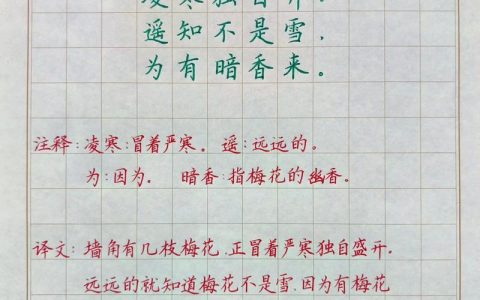 凌寒独自开.
遥知不是雪,
为有暗香来。
注释:凌寒:冒着严寒。遥:远远的。
为:因为. 暗香:指梅花的幽香。
译文:墙角有几枝梅花,正冒着严寒独自盛开.
远远的就知道梅花不是雪,因为有梅花